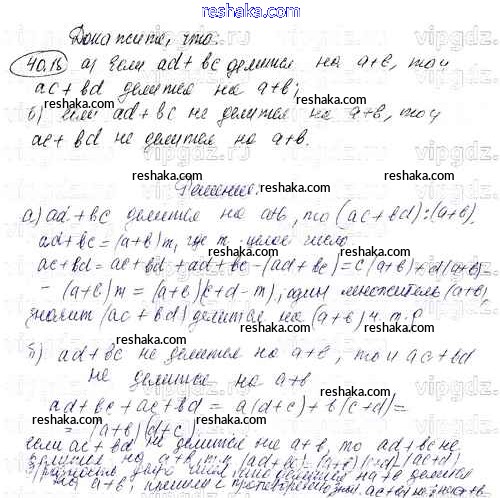 www.reshaka.com
Докажите, что:
40.18 а) Если ad + bc делится на a+b, то и
ac + bd делится на a+b;
б) если ad + bc не делится на a+b, то и
ac + bd не делится на a+b.
Решение.
а) ad + bc делится на a+b, то (ac+bd):(a+b),
ad+bc = (a+b)m, где m - целое число
ac+bd = ac + bd + ad + bc - (ad + bc) = c(a+b) + d(a+b)
- (a+b)m = (a+b)(c+d-m), один множитель (a+b),
значит (ac+bd) делится на (a+b) ч.т.д
б) ad + bc не делится на a+b, то и ac+bd
не делится на a+b
ad + bc + ac + bd = a(d+c) + b(c+d) =
= (a+b)(d+c)
если ac + bd не делится на a+b, то ad+bc не
делится на a+b, т.к. (ad+bc) = (a+b)(c+d)-(ac+bd)
на a+b, пришли к противоречию